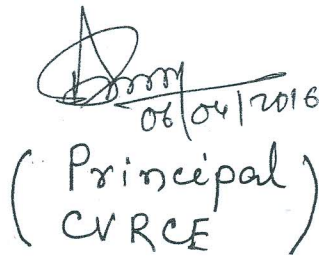 06/04/2016
(Principal)
CVRCE